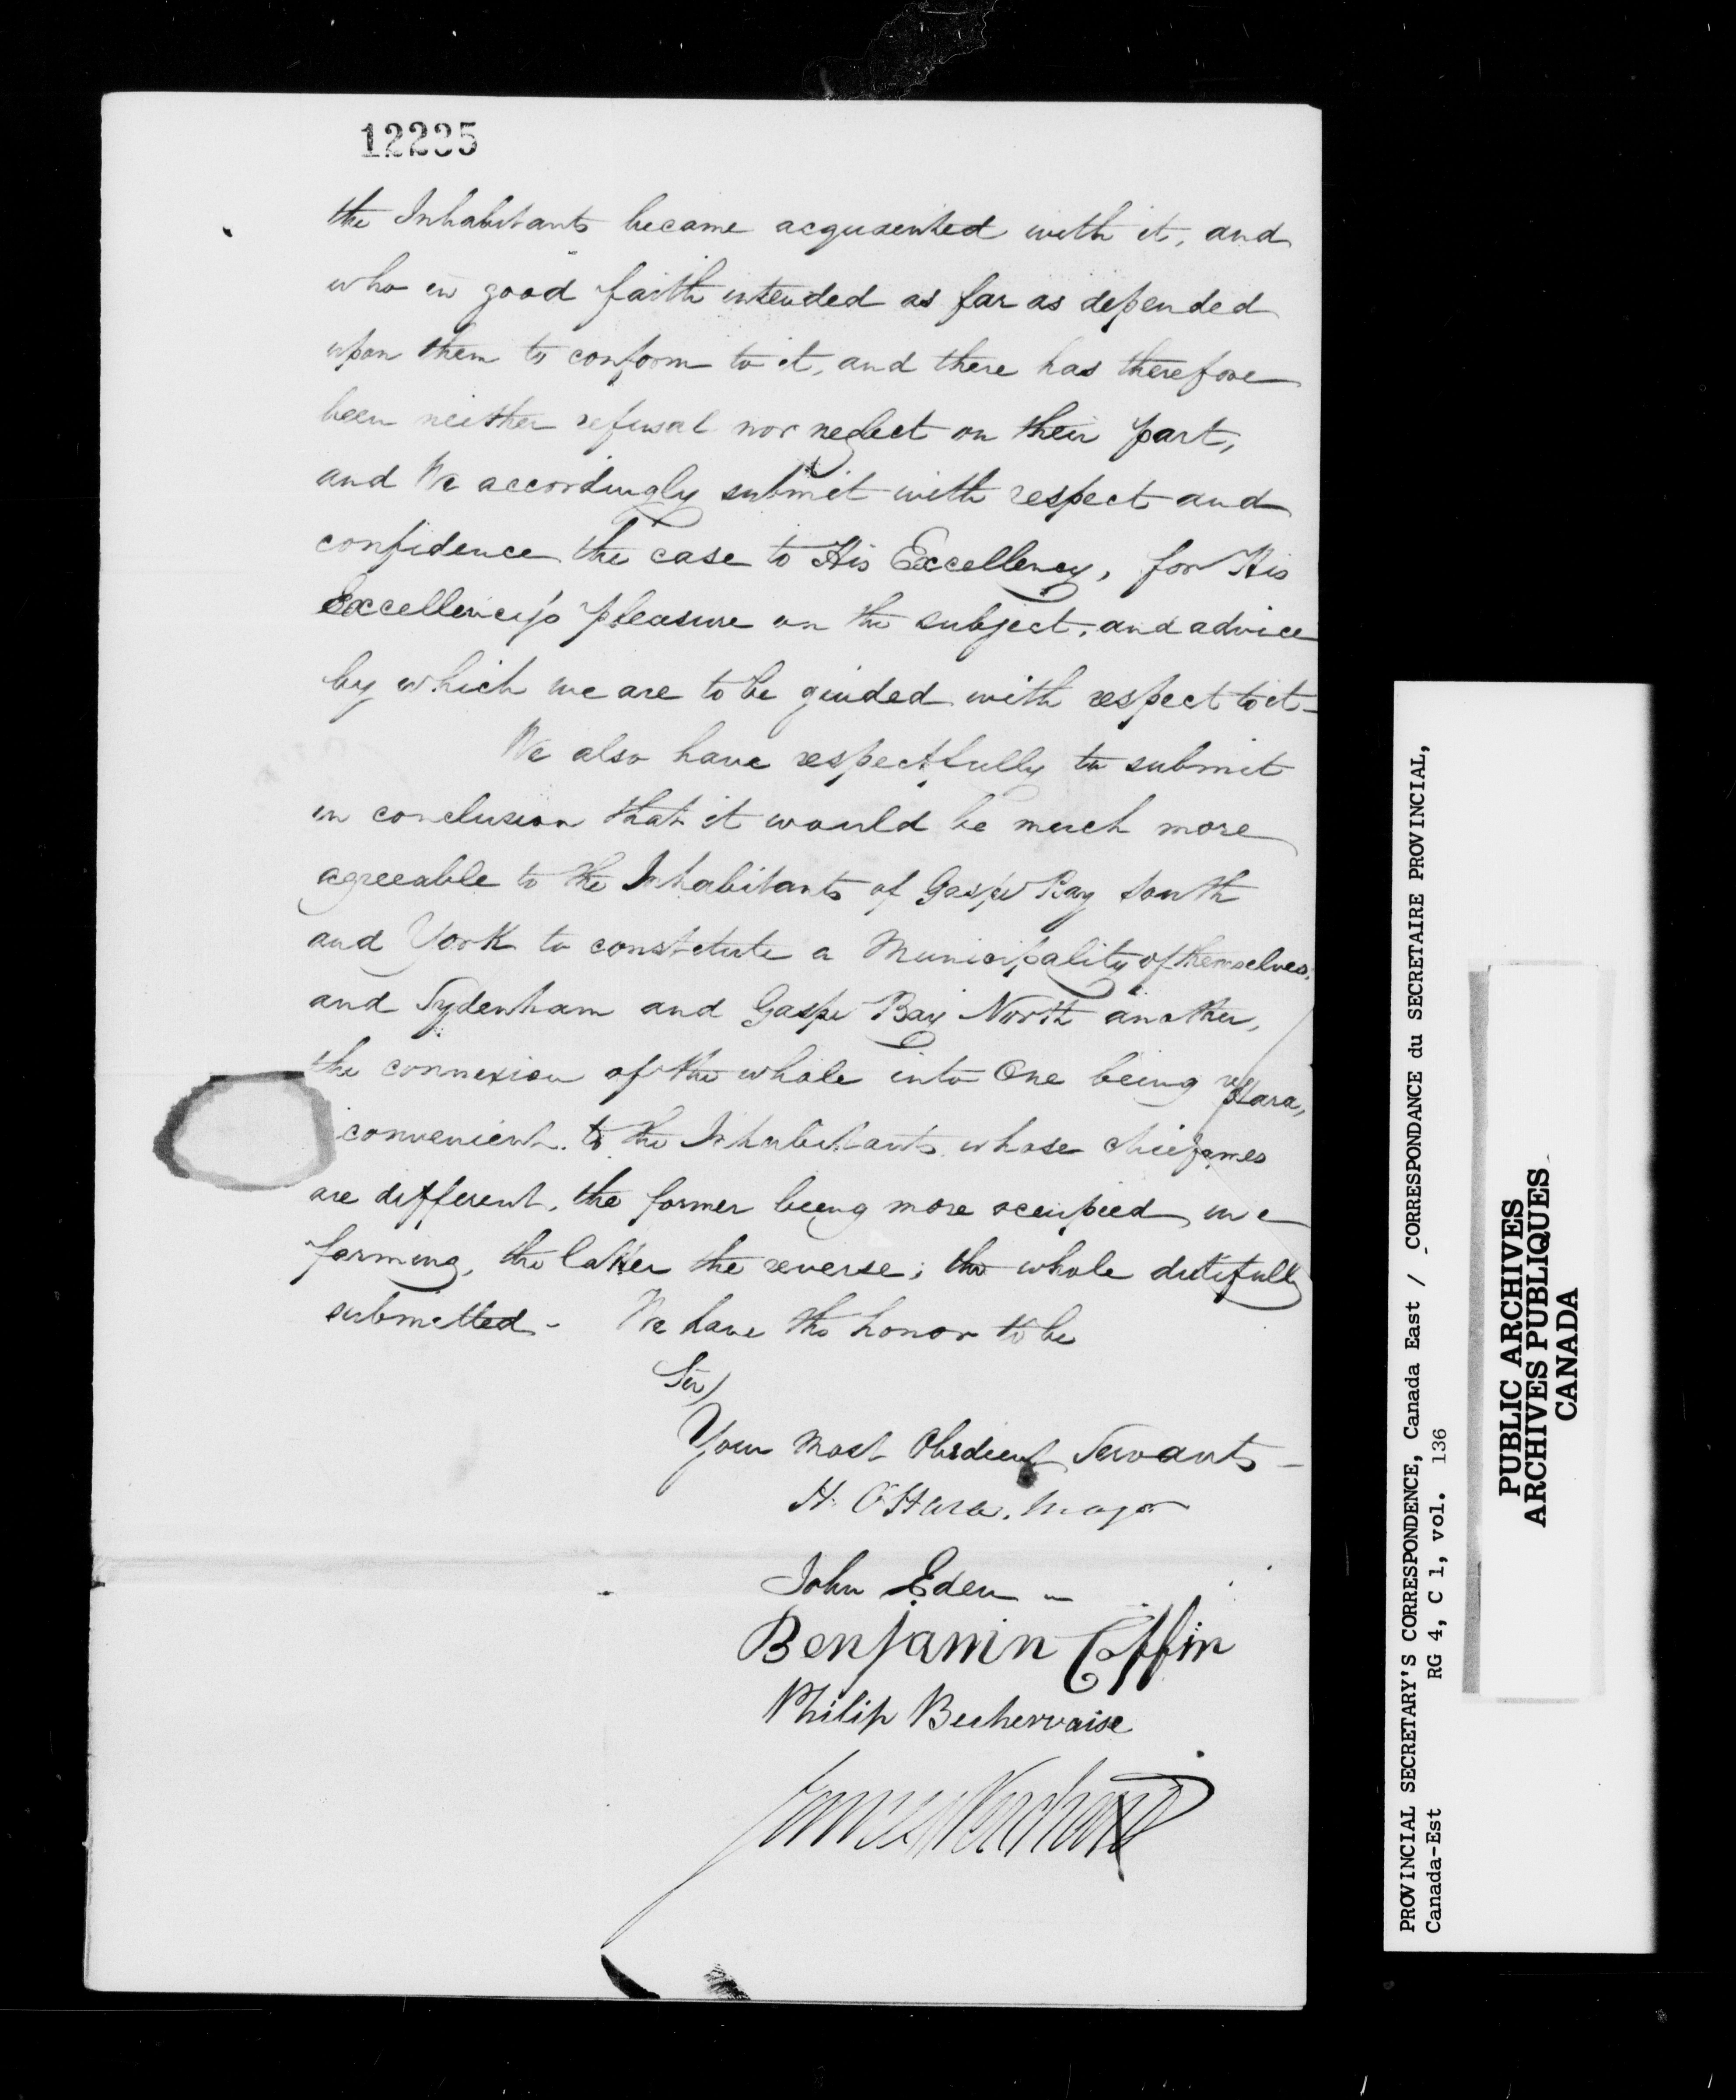 12235
the Inhabitants became acquainted with it, and
who in good faith intended as far as depended
upon them to conform to it, and there has therefore
been neither refusal nor neglect on their part,
and We accordingly submit with respect and
confidence the case to His Excellency, for His
Excellency's pleasure on the subject, and advice
by which we are to be guided with respect to it-
We also have respectfully to submit
in conclusion that it would be much more
agreeable to the Inhabitants of Gaspé Bay South
and York to constitute a Municipality of themselves,
and Sydenham and Gaspé Bay North another,
the connexion of the whole into One being
convenient to the Inhabitants whose
are different, the former being more occupied in
farming, the latter the reverse; the whole dutifully
submitted- We have the honor to be
Sir/
Your most Obedient Servants-
H. O'Hara, Mayor
John Eden
Benjamin Coffin
Philip Bechervaise
PROVINCIAL SECRETARY'S CORRESPONDENCE, Canada East / CORRESPONDANCE du SECRETAIRE PROVINCIAL,
Canada-Est RG 4, C 1, vol. 136
PUBLIC ARCHIVES
ARCHIVES PUBLIQUES
CANADA